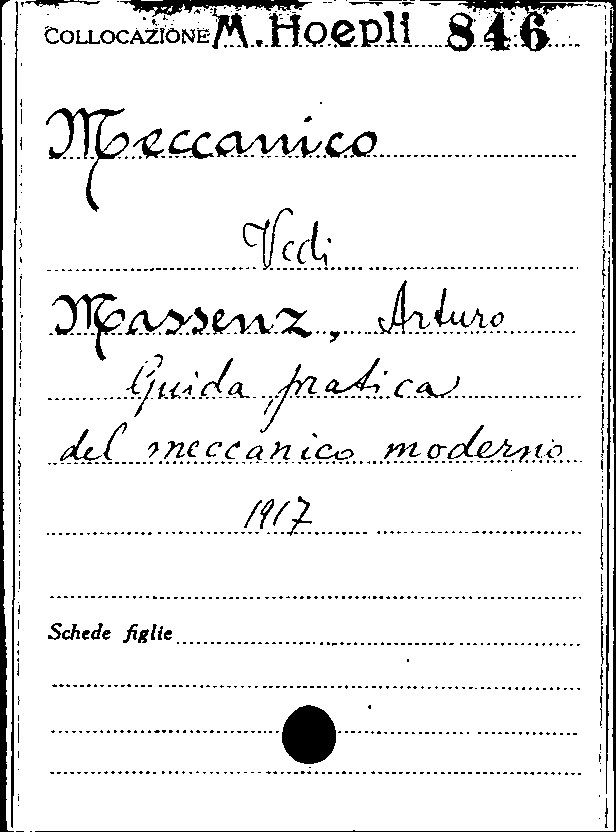 COLLOCAZIONE M. Hoepli 846
Meccanico
Vedi
Massenz, Arturo
Guida pratica
del meccanico moderno
1917
Schede figlie